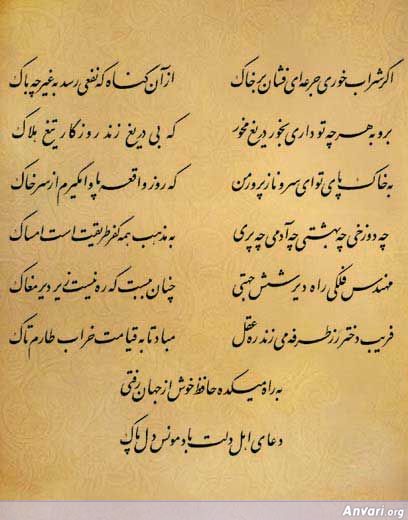 اگر شراب خوری جرعه‌ای فشان بر خاک از آن گناه که نفعی رسد به غیر چه باک
برو به هر چه تو داری بخور دریغ مخور که بی دریغ زند روزگار تیغ هلاک
به خاک پای تو ای سرو ناز پرور من که روز واقعه پا وا مگیرم از سر خاک
چه دوزخی چه بهشتی چه آدمی چه پری به مذهب همه کفر طریقت است امساک
مهندس فلکی راه دیر شش جهتی چنان ببست که ره نیست زیر دیر مغاک
فریب دختر رز طرفه می زند ره عقل مباد تا به قیامت خراب طارم تاک
به راه میکده حافظ خوش از جهان رفتی
دعای اهل دلت باد مونس دل پاک
Anvari.org